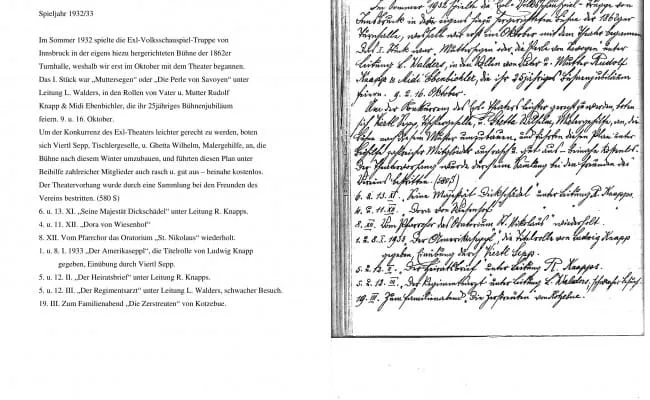 Spieljahr 1932/33
Im Sommer 1932 spielte die Exl-Volksschauspiel-Truppe von
Innsbruck in der eigens hiezu hergerichteten Bühne der 1862er
Turnhalle, weshalb wir erst im Oktober mit dem Theater begannen.
Das I. Stück war „Muttersegen“ oder „Die Perle von Savoyen“ unter
Leitung L. Walders, in den Rollen von Vater u. Mutter Rudolf
Knapp & Midi Ebenbichler, die ihr 25jähriges Bühnenjubiläum
feiern. 9. u. 16. Oktober.
Um der Konkurrenz des Exl-Theaters leichter gerecht zu werden, boten
sich Viertl Sepp, Tischlergeselle, u. Ghetta Wilhelm, Malergehilfe, an, die
Bühne nach diesem Winter umzubauen, und führten diesen Plan unter
Beihilfe zahlreicher Mitglieder auch rasch u. gut aus – beinahe kostenlos.
Der Theatervorhang wurde durch eine Sammlung bei den Freunden des
Vereins bestritten. (580 S)
6. u. 13. XI. „Seine Majestät Dickschädel“ unter Leitung R. Knapps.
4. u. 11. XII. „Dora von Wiesenhof“
8. XII. Vom Pfarrchor das Oratorium „St. Nikolaus“ wiederholt.
1. u. 8. I. 1933 „Der Amerikaseppl“, die Titelrolle von Ludwig Knapp
gegeben, Einübung durch Viertl Sepp.
5. u. 12. II. „Der Heiratsbrief“ unter Leitung R. Knapps.
5. u. 12. III. „Der Regimentsarzt“ unter Leitung L. Walders, schwacher Besuch.
19. III. Zum Familienabend „Die Zerstreuten“ von Kotzebue.
Im Sommer 1932 spielte die Exl-Volksschauspiel-Truppe von
Innsbruck in der eigens hiezu hergerichteten Bühne der 1862er
Turnhalle, weshalb wir erst im Oktober mit dem Theater begannen.
Das I. Stück war „Muttersegen oder die Perle von Savoyen“ unter
Leitung L. Walders, in den Rollen von Vater u. Mutter Rudolf
Knapp & Midi Ebenbichler, die ihr 25jähriges Bühnenjubiläum
feiern. 9. u. 16. Oktober.
Um der Konkurrenz des Exl-Theaters leichter gerecht zu werden, boten
sich Viertl Sepp, Tischlergeselle, u. Ghetta Wilhelm, Malergehilfe, an, die
Bühne nach diesem Winter umzubauen, und führten diesen Plan unter
Beihilfe zahlreicher Mitglieder auch rasch u. gut aus – beinahe kostenlos.
Der Theatervorhang wurde durch eine Sammlung bei den Freunden des
Vereins bestritten. (580 S)
6. u. 13. XI. „Seine Majestät Dickschädel“ unter Leitung R. Knapps.
4. u. 11. XII. „Dora von Wiesenhof“
8. XII. Vom Pfarrchor das Oratorium „St. Nikolaus“ wiederholt.
1. u. 8. I. 1933 „Der Amerikaseppl“, die Titelrolle von Ludwig Knapp
gegeben, Einübung durch Viertl Sepp.
5. u. 12. II. „Der Heiratsbrief“ unter Leitung R. Knapps.
5. u. 12. III. „Der Regimentsarzt“ unter Leitung L. Walders, schwacher Besuch.
19. III. Zum Familienabend „Die Zerstreuten“ von Kotzebue.